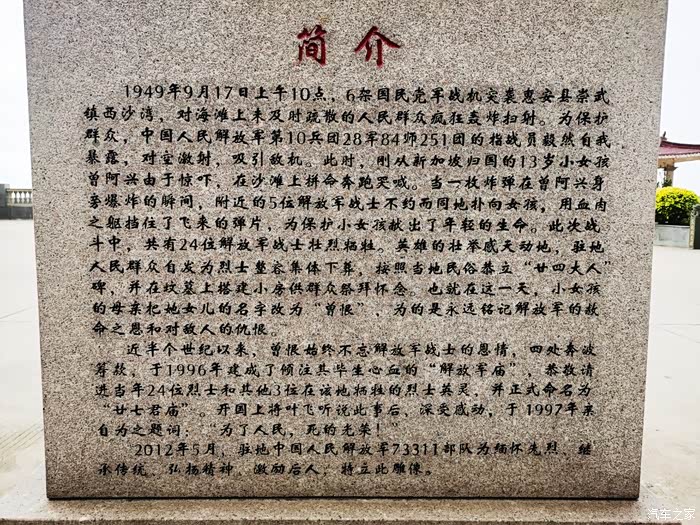 简介
1949年9月17日上午10点，6架国民党军战机突袭惠安县崇武
镇西沙湾，对海滩上未及时疏散的人民群众疯狂轰炸扫射。为保护
群众，中国人民解放军第10兵团28军84师251团的指战员毅然自我
暴露，对空激射，吸引敌机。此时，刚从新加坡归国的13岁小女孩
曾阿兴由于惊吓，在沙滩上拼命奔跑哭喊。当一枚炸弹在曾阿兴身
旁爆炸的瞬间，附近的5位解放军战士不约而同地扑向女孩，用血肉
之躯挡住了飞来的弹片，为保护小女孩献出了年轻的生命。此次战
斗中，共有24位解放军战士壮烈牺牲。英雄的壮举感天动地，驻地
人民群众自发为烈士整容集体下葬，按照当地民俗恭立“廿四大人”
碑，并在坟墓上搭建小房供群众祭拜怀念。也就在这一天，小女孩
的母亲把她女儿的名字改为“曾恨”，为的是永远铭记解放军的救
命之恩和对敌人的仇恨。
近半个世纪以来，曾恨始终不忘解放军战士的恩情，四处奔波
筹款，于1996年建成了倾注其毕生心血的“解放军庙”，恭敬请
进当年24位烈士和其他3位在该地牺牲的烈士英灵，并正式命名为
“廿七君庙”。开国上将叶飞听说此事后，深受感动，于1997年亲
自为之题词：“为了人民，死的光荣！”
2012年5月，驻地中国人民解放军73311部队为缅怀先烈、继
承传统、弘扬精神、激励后人，特立此雕像。
汽车之家